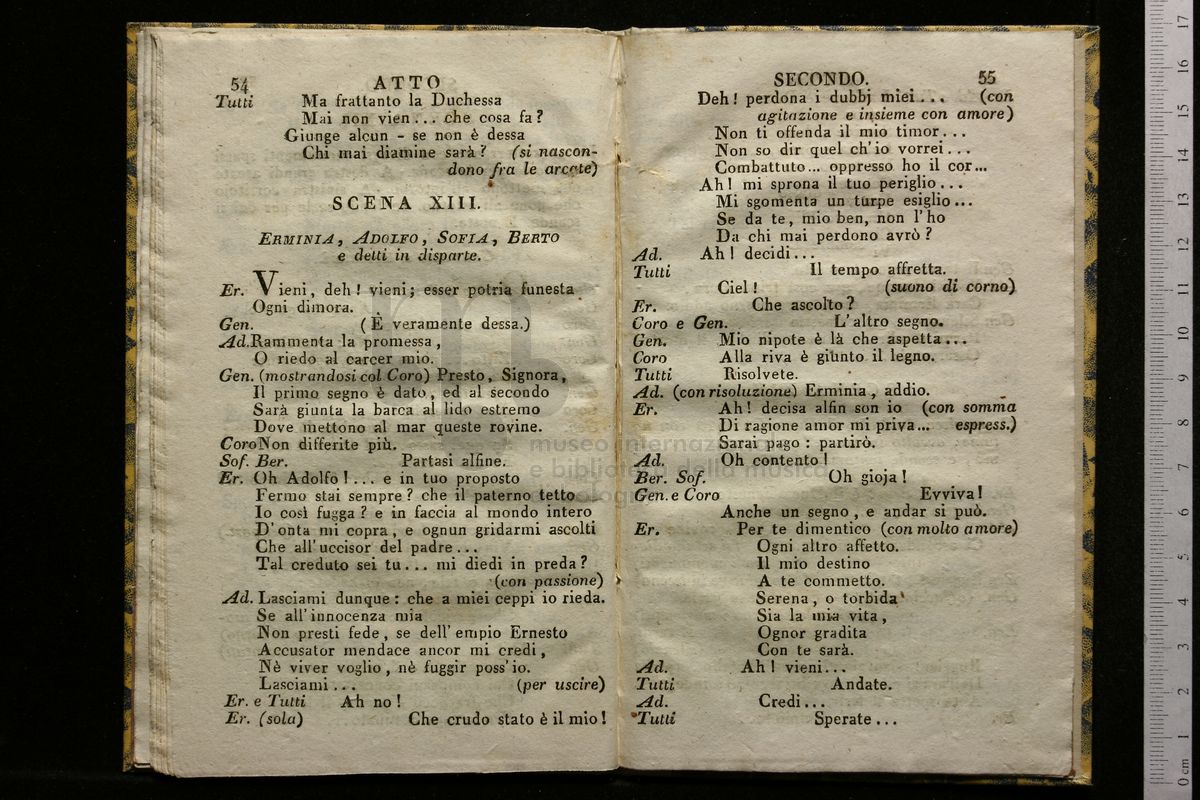 54
ATTO
Tutti Ma frattanto la Duchessa
Mai non vien... che cosa fa?
Giunge alcun - se non è dessa
Chi mai diamine sarà? (si nascon-
dono fra le arcate)
SCENA XIII.
ERMINIA, ADOLFO, SOFIA, BERTO
e detti in disparte.
Er. Vieni, deh! vieni; esser potria funesta
Ogni dimora.
Gen. (È veramente dessa.)
Ad. Rammenta la promessa,
O riedo al carcer mio.
Gen. (mostrandosi col Coro) Presto, Signora,
Il primo segno è dato, ed al secondo
Sarà giunta la barca al lido estremo
Dove mettono al mar queste rovine.
Coro Non differite più.
Sof. Ber. Partasi alfine.
Er. Oh Adolfo!... e in tuo proposto
Fermo stai sempre? che il paterno tetto
Io così fugga? e in faccia al mondo intero
D'onta mi copra, e ognun gridarmi ascolti
Che all'uccisor del padre...
Tal creduto sei tu... mi diedi in preda?
(con passione)
Ad. Lasciami dunque: che a miei ceppi io rieda.
Se all'innocenza mia
Non presti fede, se dell'empio Ernesto
Accusator mendace ancor mi credi,
Nè viver voglio, nè fuggir poss'io.
Lasciami... (per uscire)
Er. e Tutti Ah no!
Er. (sola) Che crudo stato è il mio!
SECONDO.
55
Deh! perdona i dubbj miei... (con
agitazione e insieme con amore)
Non ti offenda il mio timor...
Non so dir quel ch'io vorrei...
Combattuto... oppresso ho il cor...
Ah! mi sprona il tuo periglio...
Mi sgomenta un turpe esiglio...
Se da te, mio ben, non l'ho
Da chi mai perdono avrò?
Ad. Ah! decidi...
Tutti Il tempo affretta.
Ciel! (suono di corno)
Er. Che ascolto?
Coro e Gen. L'altro segno.
Gen. Mio nipote è là che aspetta...
Coro Alla riva è giunto il legno.
Tutti Risolvete.
Ad. (con risoluzione) Erminia, addio.
Er. Ah! decisa alfin son io (con somma
Di ragione amor mi priva... espress.)
Sarai pago: partirò.
Ad. Oh contento!
Ber. Sof. Oh gioja!
Gen. e Coro Evviva!
Anche un segno, e andar si può.
Er. Per te dimentico (con molto amore)
Ogni altro affetto.
Il mio destino
A te commetto.
Serena, o torbida
Sia la mia vita,
Ognor gradita
Con te sarà.
Ad. Ah! vieni...
Tutti Andate.
Ad. Credi...
Tutti Sperate...
museo internaz
e biblio della musica
0 cm 1 2 3 4 5 6 7 8 9 10 11 12 13 14 15 16 17